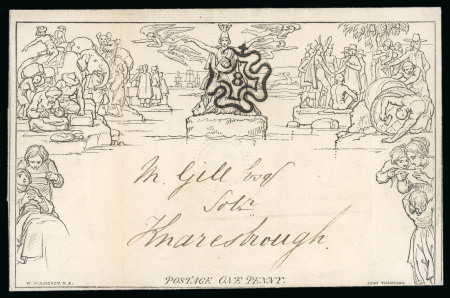 8
M. Gill Esqr
Solr.
Knaresbrough.
POSTAGE ONE PENNY.
W. MULREADY. R.A.
JOHN THOMPSON.